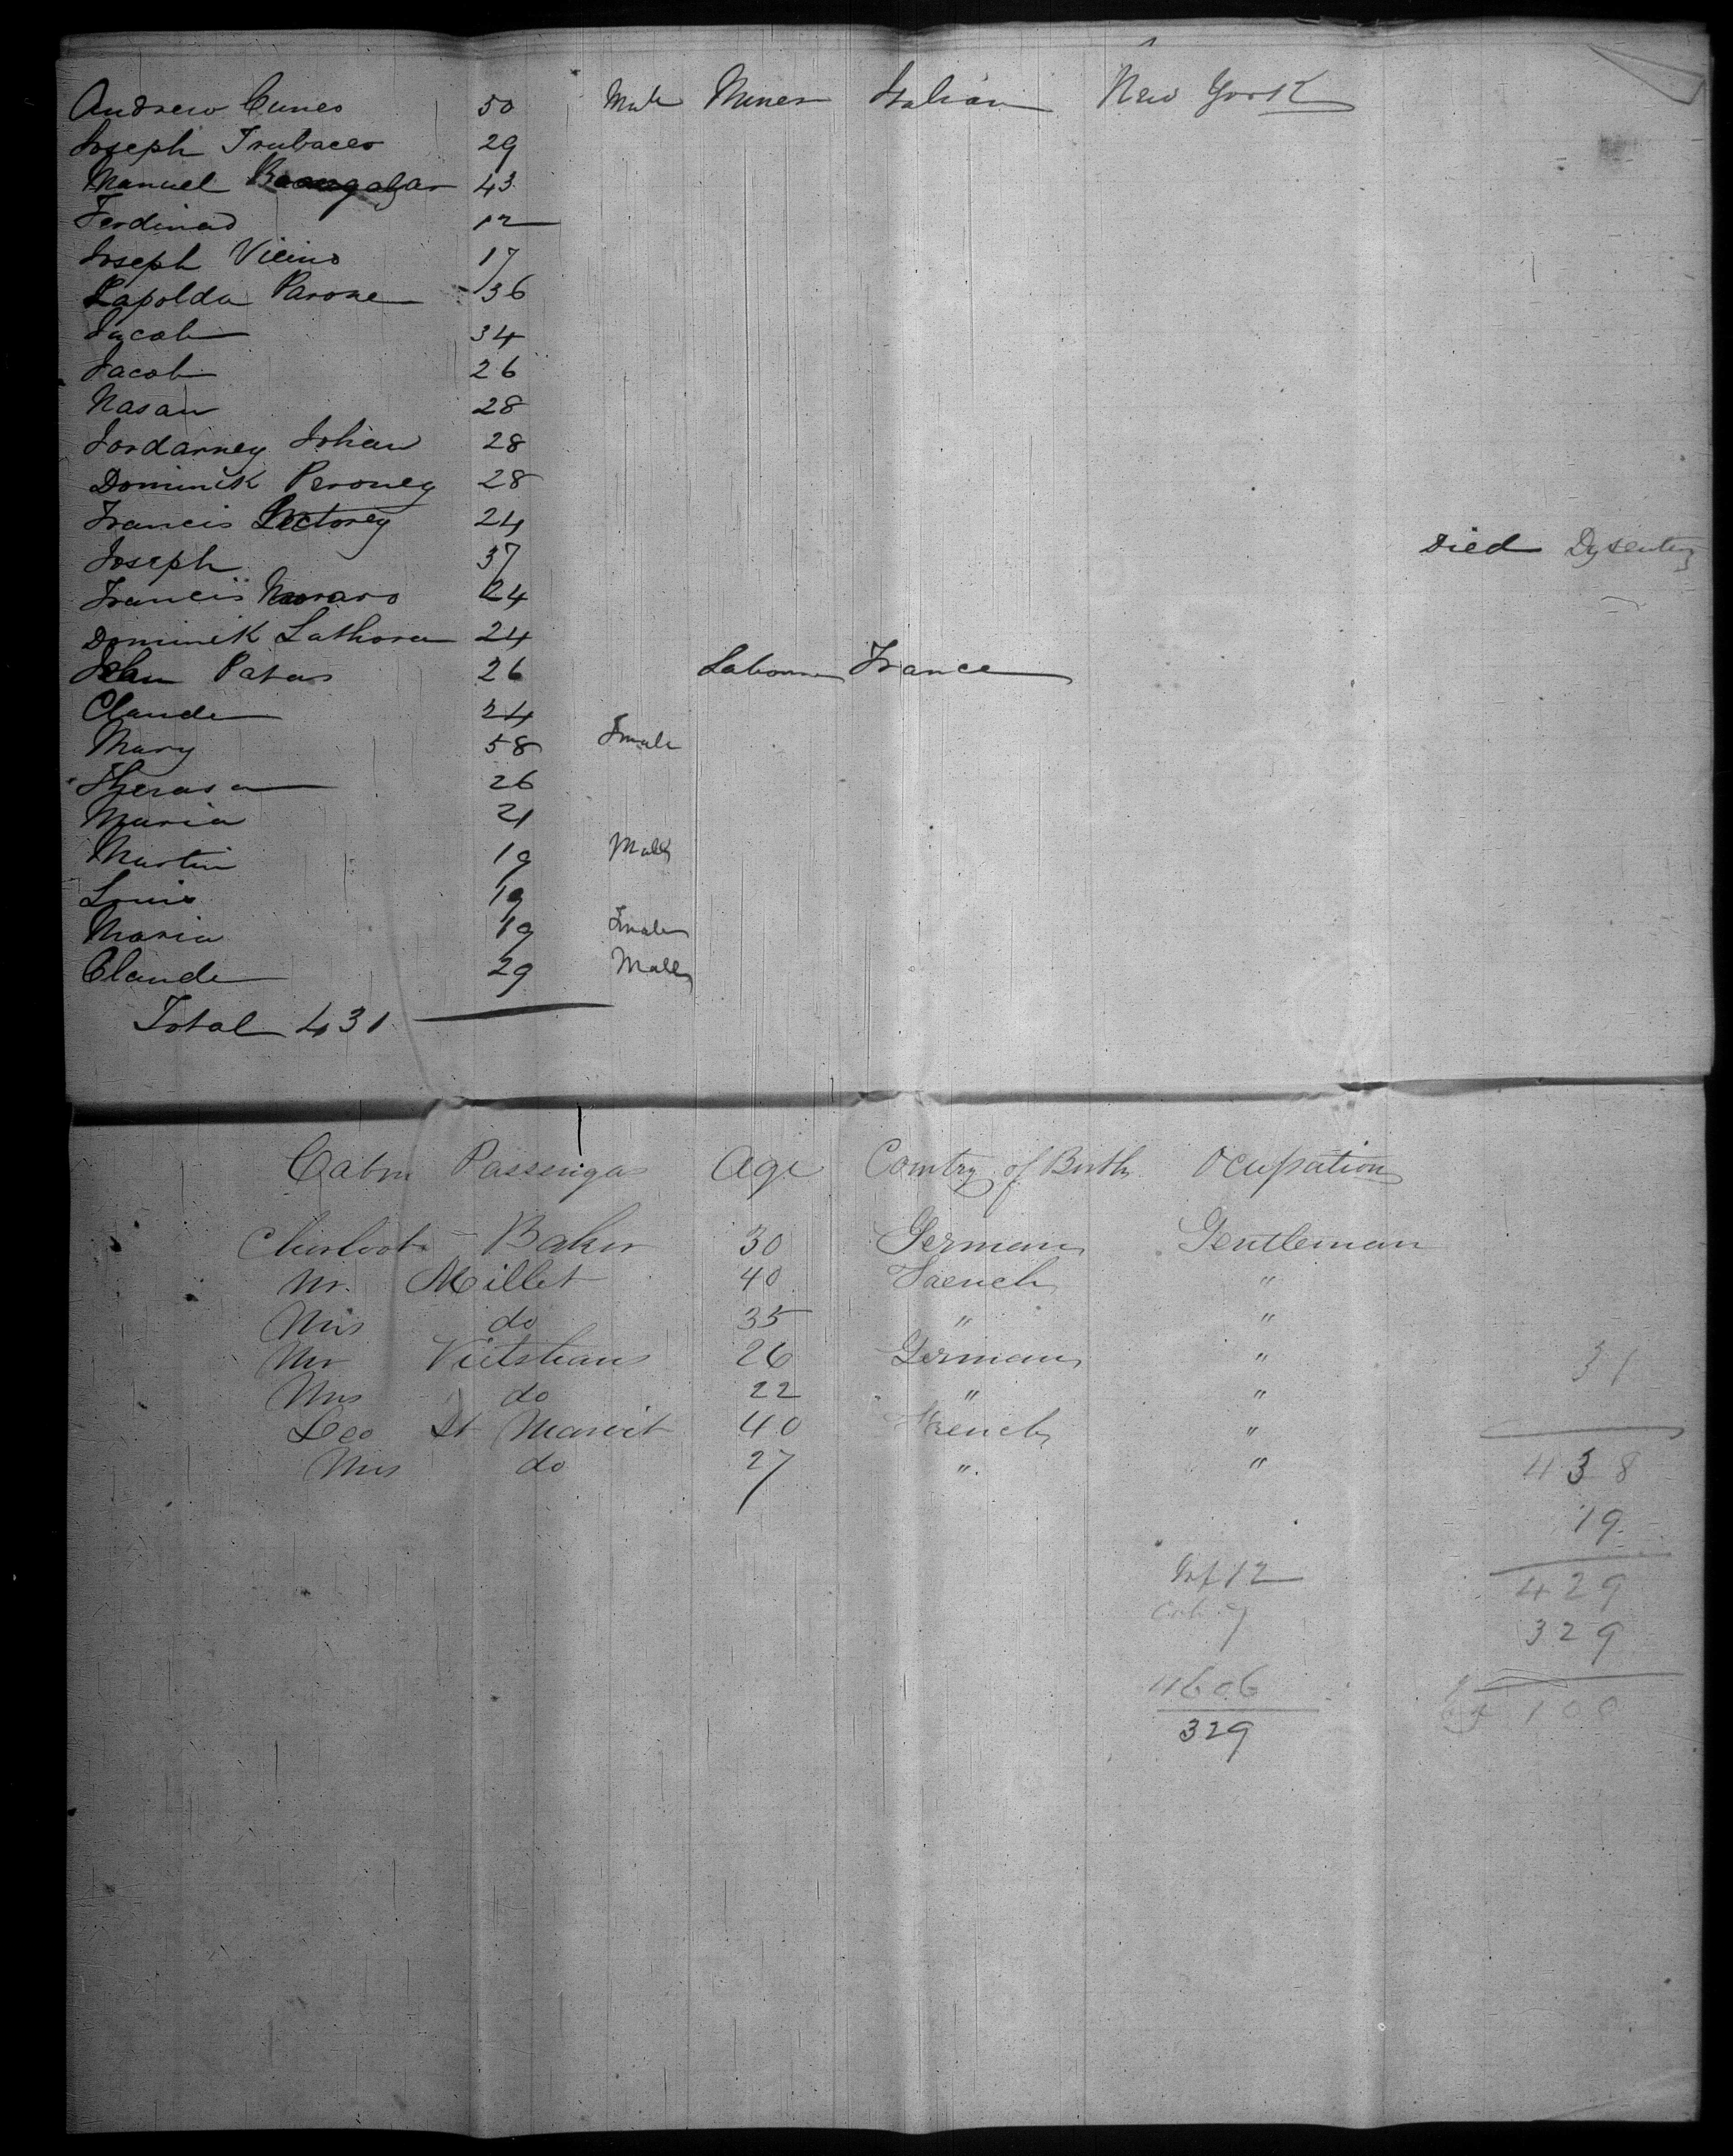 Andrew Cuneo 50 Male Miner Italian New York
Joseph Trubaceo 29
Manuel 43
Ferdinad 12
Joseph Vicino 17
Lapolda Parone 36
Jacob 34
Jacob 26
Nasan 28
Jordanney Johan 28
Dominik Peroney 28
Francis 24
Joseph 37 Died Dysentery
Francis 24
Dominik Lathora 24
Patas 26 Labourer France
Claude 24
Mary 58 Female
Therasa 26
Maria 21
Martin 19 Male
Louis 19
Maria 19 Female
Claude 29 Male
Total 431
Cabin Passengers Age Country of Birth Ocupation
Baker 30 German Gentleman
Mr. Millet 40 French "
Mrs do 35 " "
Mr 26 German "
Mrs do 22 " "
Leo St 40 French "
Mrs do 27 " "
31
438
19
Inf 12 429
Cab 7 329
4606 100
329